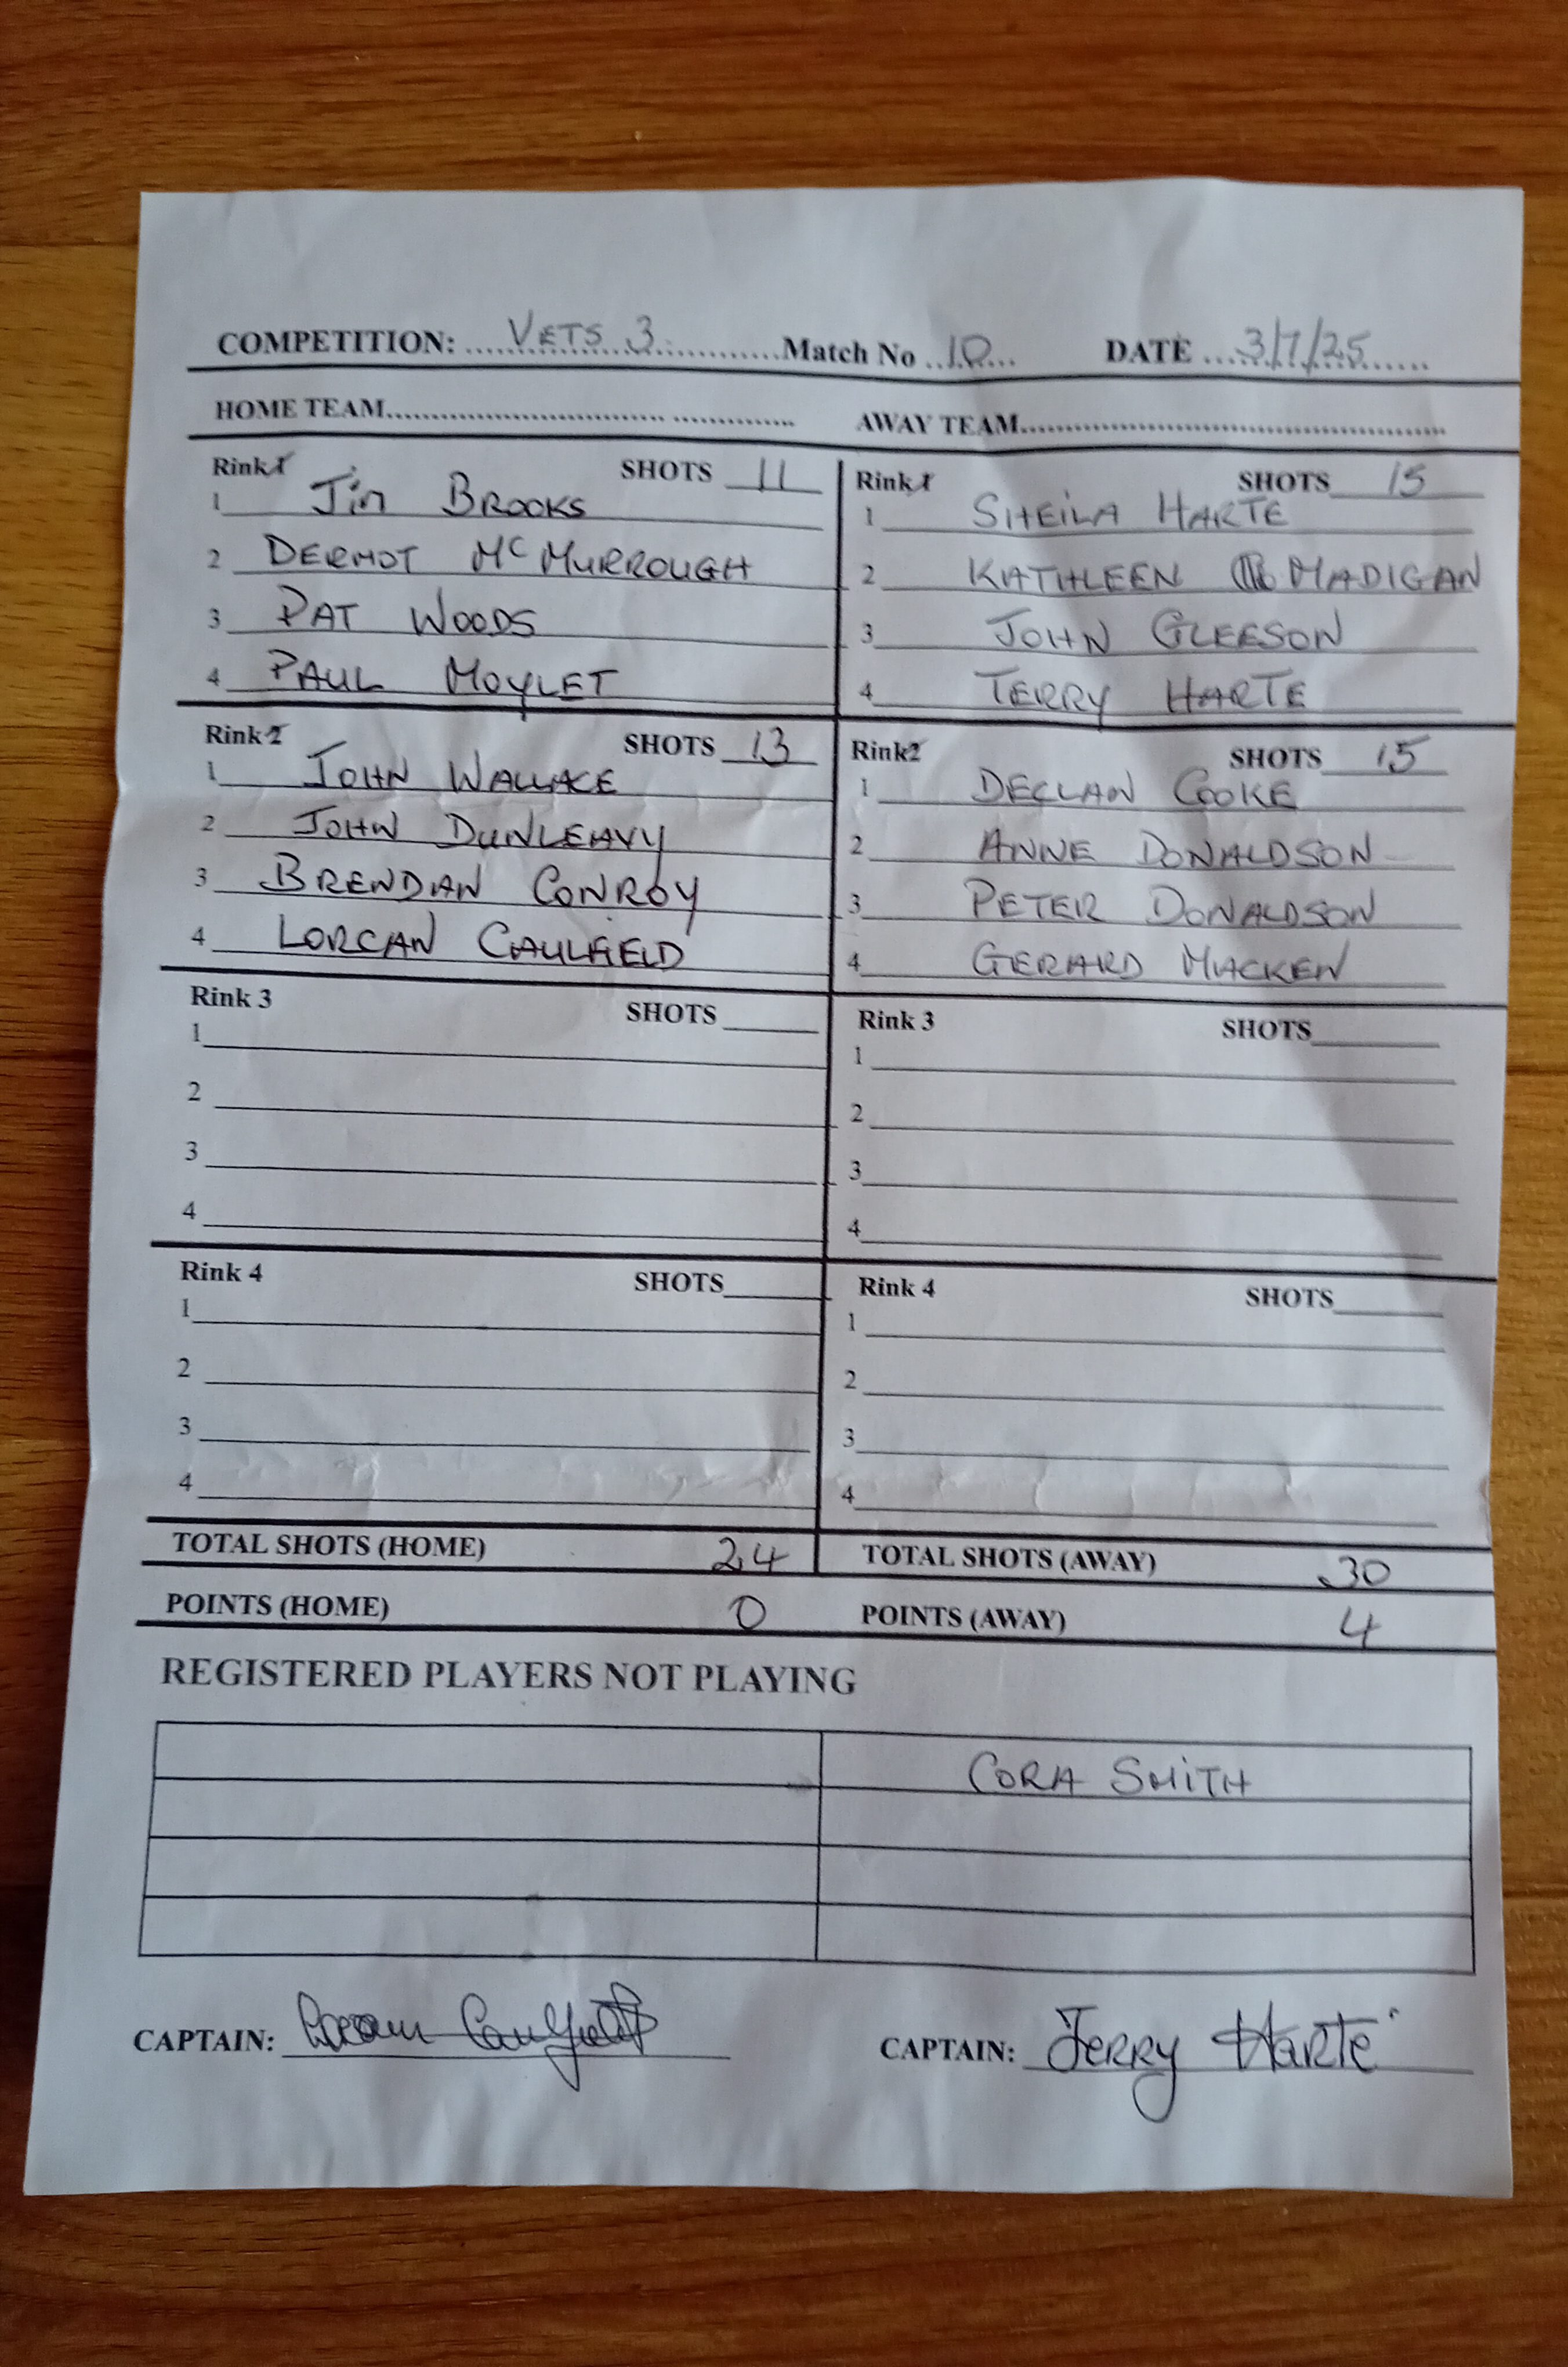 COMPETITION: VETS 3 Match No 10 DATE 3/7/25
HOME TEAM AWAY TEAM
Rink 1 SHOTS 11
1 JIM BROOKS
2 DERMOT McMURROUGH
3 PAT WOODS
4 PAUL MOYLET
Rink 1 SHOTS 15
1 SHEILA HARTE
2 KATHLEEN MADIGAN
3 JOHN GLEESON
4 TERRY HARTE
Rink 2 SHOTS 13
1 JOHN WALLACE
2 JOHN DUNLEAVY
3 BRENDAN CONROY
4 LORCAN CAULFIELD
Rink 2 SHOTS 15
1 DECLAN COOKE
2 ANNE DONALDSON
3 PETER DONALDSON
4 GERARD MACKEN
Rink 3 SHOTS
1
2
3
4
Rink 3 SHOTS
1
2
3
4
Rink 4 SHOTS
1
2
3
4
Rink 4 SHOTS
1
2
3
4
TOTAL SHOTS (HOME) 24 TOTAL SHOTS (AWAY) 30
POINTS (HOME) 0 POINTS (AWAY) 4
REGISTERED PLAYERS NOT PLAYING
CORA SMITH
CAPTAIN: Lorcan Caulfield CAPTAIN: TERRY HARTE